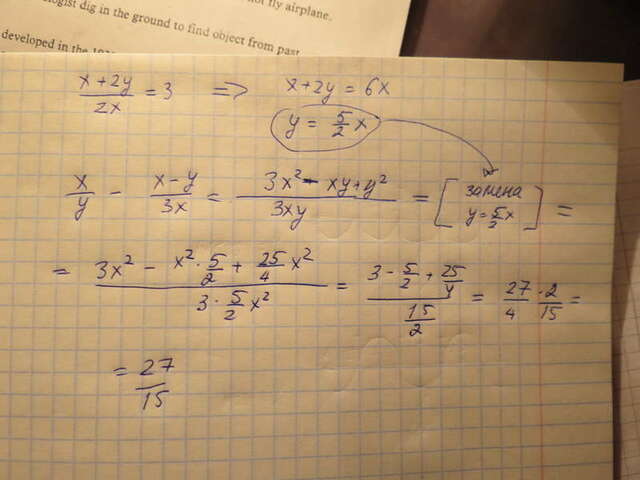 ologist dig in the ground to find object from past
not fly airplane.
developed in the
(x+2y)/(2x) = 3 => x+2y = 6x
y = 5/2 x
x/y - (x-y)/(3x) = (3x² - xy + y²)/(3xy) = [замена y = 5/2 x] =
= (3x² - x² · 5/2 + 25/4 x²)/(3 · 5/2 x²) = (3 - 5/2 + 25/4)/(15/2) = 27/4 · 2/15 =
= 27/15